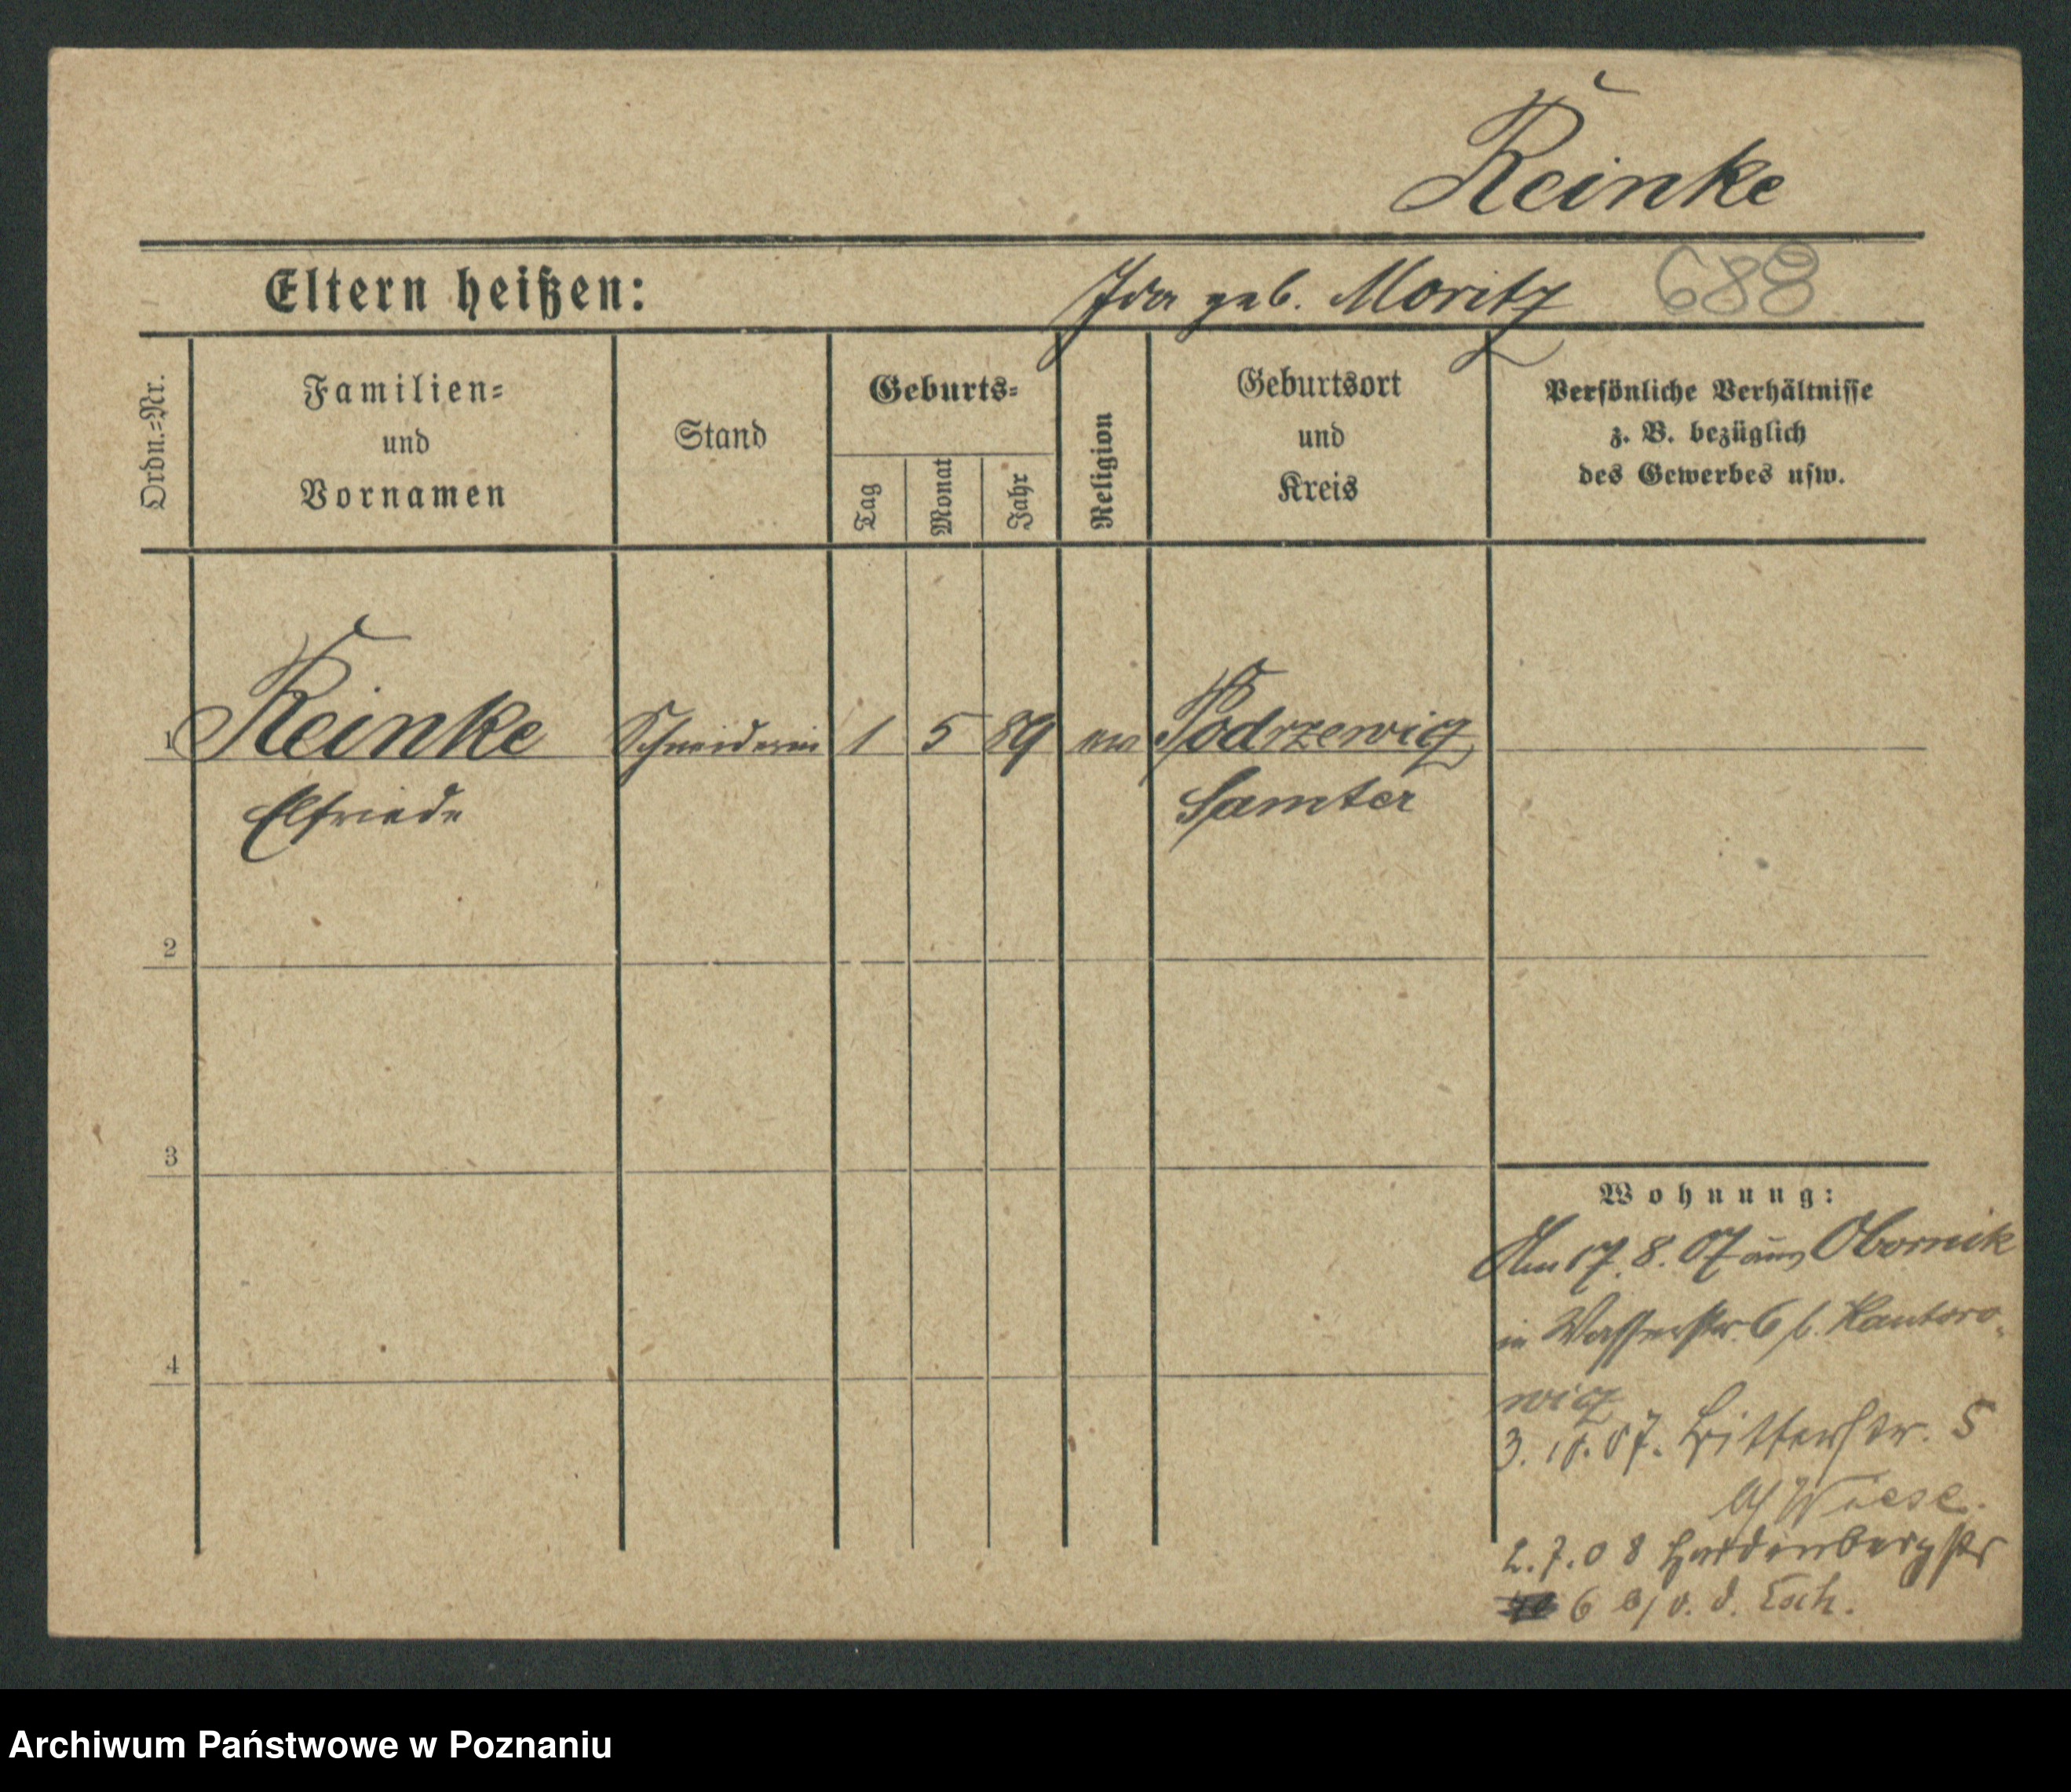 Reinke
Eltern heißen:
Ida geb. Moritz 688
Ordn.=Nr.
Familien=
und
Vornamen
Stand
Geburts=
Tag
Monat
Jahr
Religion
Geburtsort
und
Kreis
Persönliche Verhältnisse
z. B. bezüglich
des Gewerbes usw.
1 Reinke Schneiderin 1 5 89 ew Podrzewie
Elfriede Samter
2
3
4
Wohnung:
Am 17. 8. 07 aus Obornik
in Wasserstr. 6 b. Kantoro-
wicz
3. 10. 07. Ritterstr. 5
b/ Wiese.
2. 7. 08 Hardenbergstr
6 b/ v. d. Esch.
Archiwum Państwowe w Poznaniu